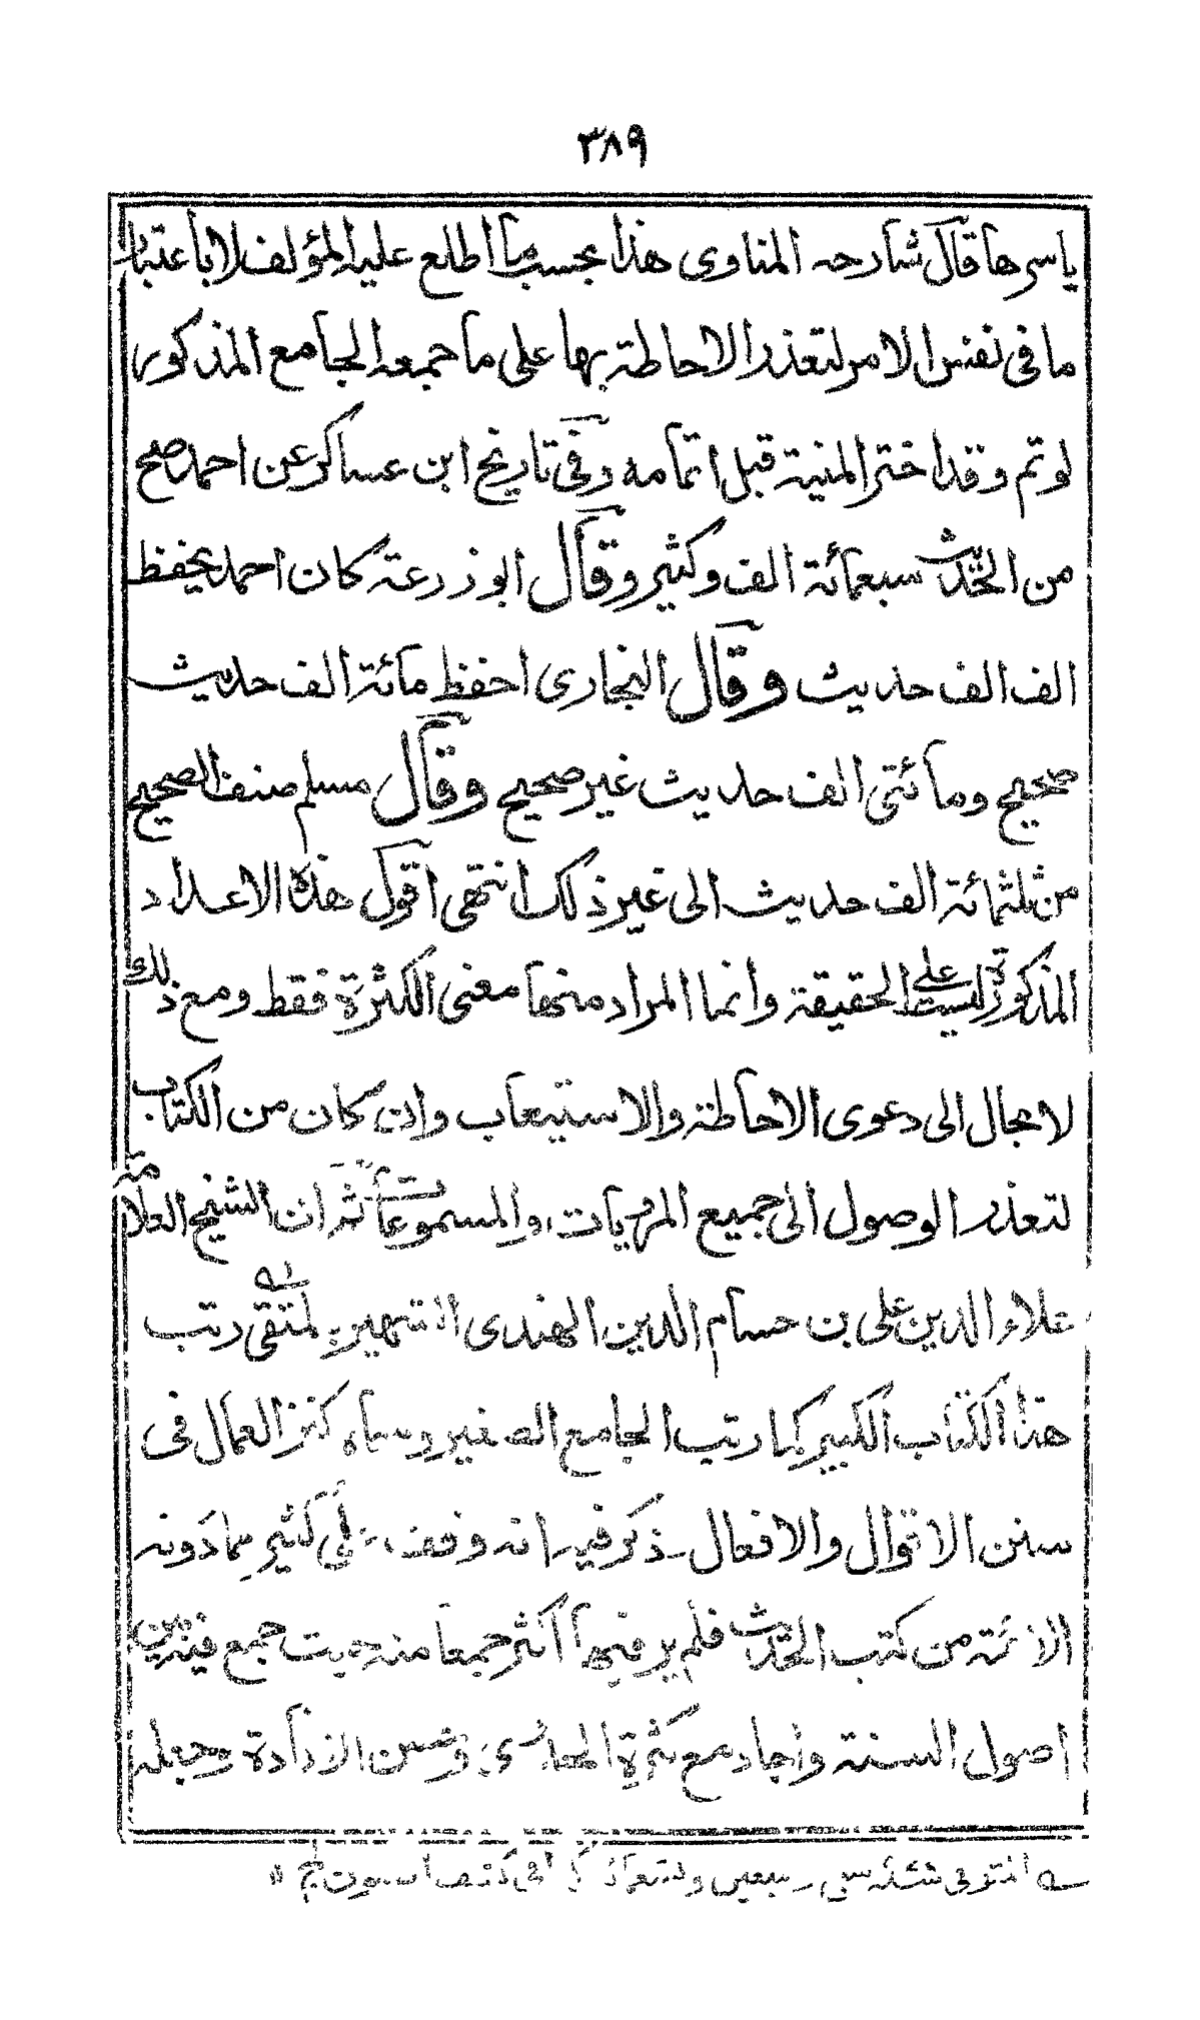 ٣٨٩
باسرها قال شارحه المناوى هذا بحسب ما اطلع عليه المؤلف لا باعتبار
ما فى نفس الامر لتعذر الاحاطة بها على ما جمعه الجامع المذكور
لو تم وقد اخترمته المنية قبل اتمامه وفى تاريخ ابن عساكر عن احمد صح
من الحديث سبعمائة الف وكثير وقال ابو زرعة كان احمد يحفظ
الف الف حديث وقال البخارى احفظ مائة الف حديث
صحيح ومائتى الف حديث غير صحيح وقال مسلم صنف الصحيح
من ثلثمائة الف حديث الى غير ذلك انتهى اقول هذه الاعداد
المذكورة ليست على الحقيقة وانما المراد منها معنى الكثرة فقط ومع ذلك
لا مجال الى دعوى الاحاطة والاستيعاب وان كان من الكتاب
لتعذر الوصول الى جميع المرويات والمسموعات ثم ان الشيخ العلامة
علاء الدين على بن حسام الدين الهندى الشهير بالمتقى رتب
هذا الكتاب الكبير كما رتب الجامع الصغير وسماه كنز العمال فى
سنن الاقوال والافعال ذكر فيه انه وقف على كثير مما دونه
الائمة من كتب الحديث فلم ير فيها اكثر جمعا منه حيث جمع فيه بين
اصول السنة واجاد مع كثرة الجدوى وحسن الافادة وجعله
المتوفى سنة خمس وسبعين وتسعمائة